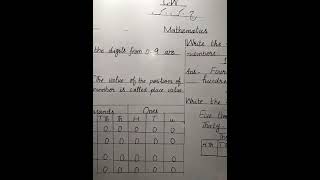 C.W
Mathematics
the digits from 0-9 are
The value of the positions of
number is called place value
sands Ones
T.Th Th H T U
0 0 0 0 0
0 0 0 0 0
0 0 0 0 0
0 0 0 0 0
Write the
numbers
Ans- Four
hundred
Write the
Five
Thirty
H.Th